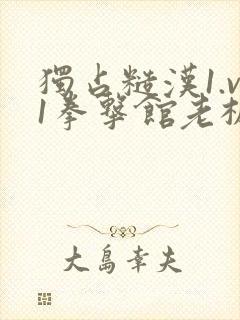 獨占糙漢1.v
1拳擊館老板
大島幸夫